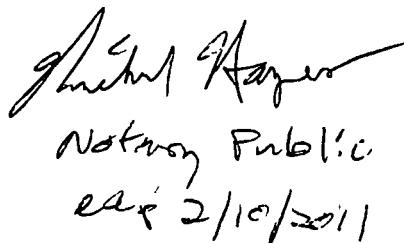 Michael Hayes
Notary Public
exp 2/10/2011